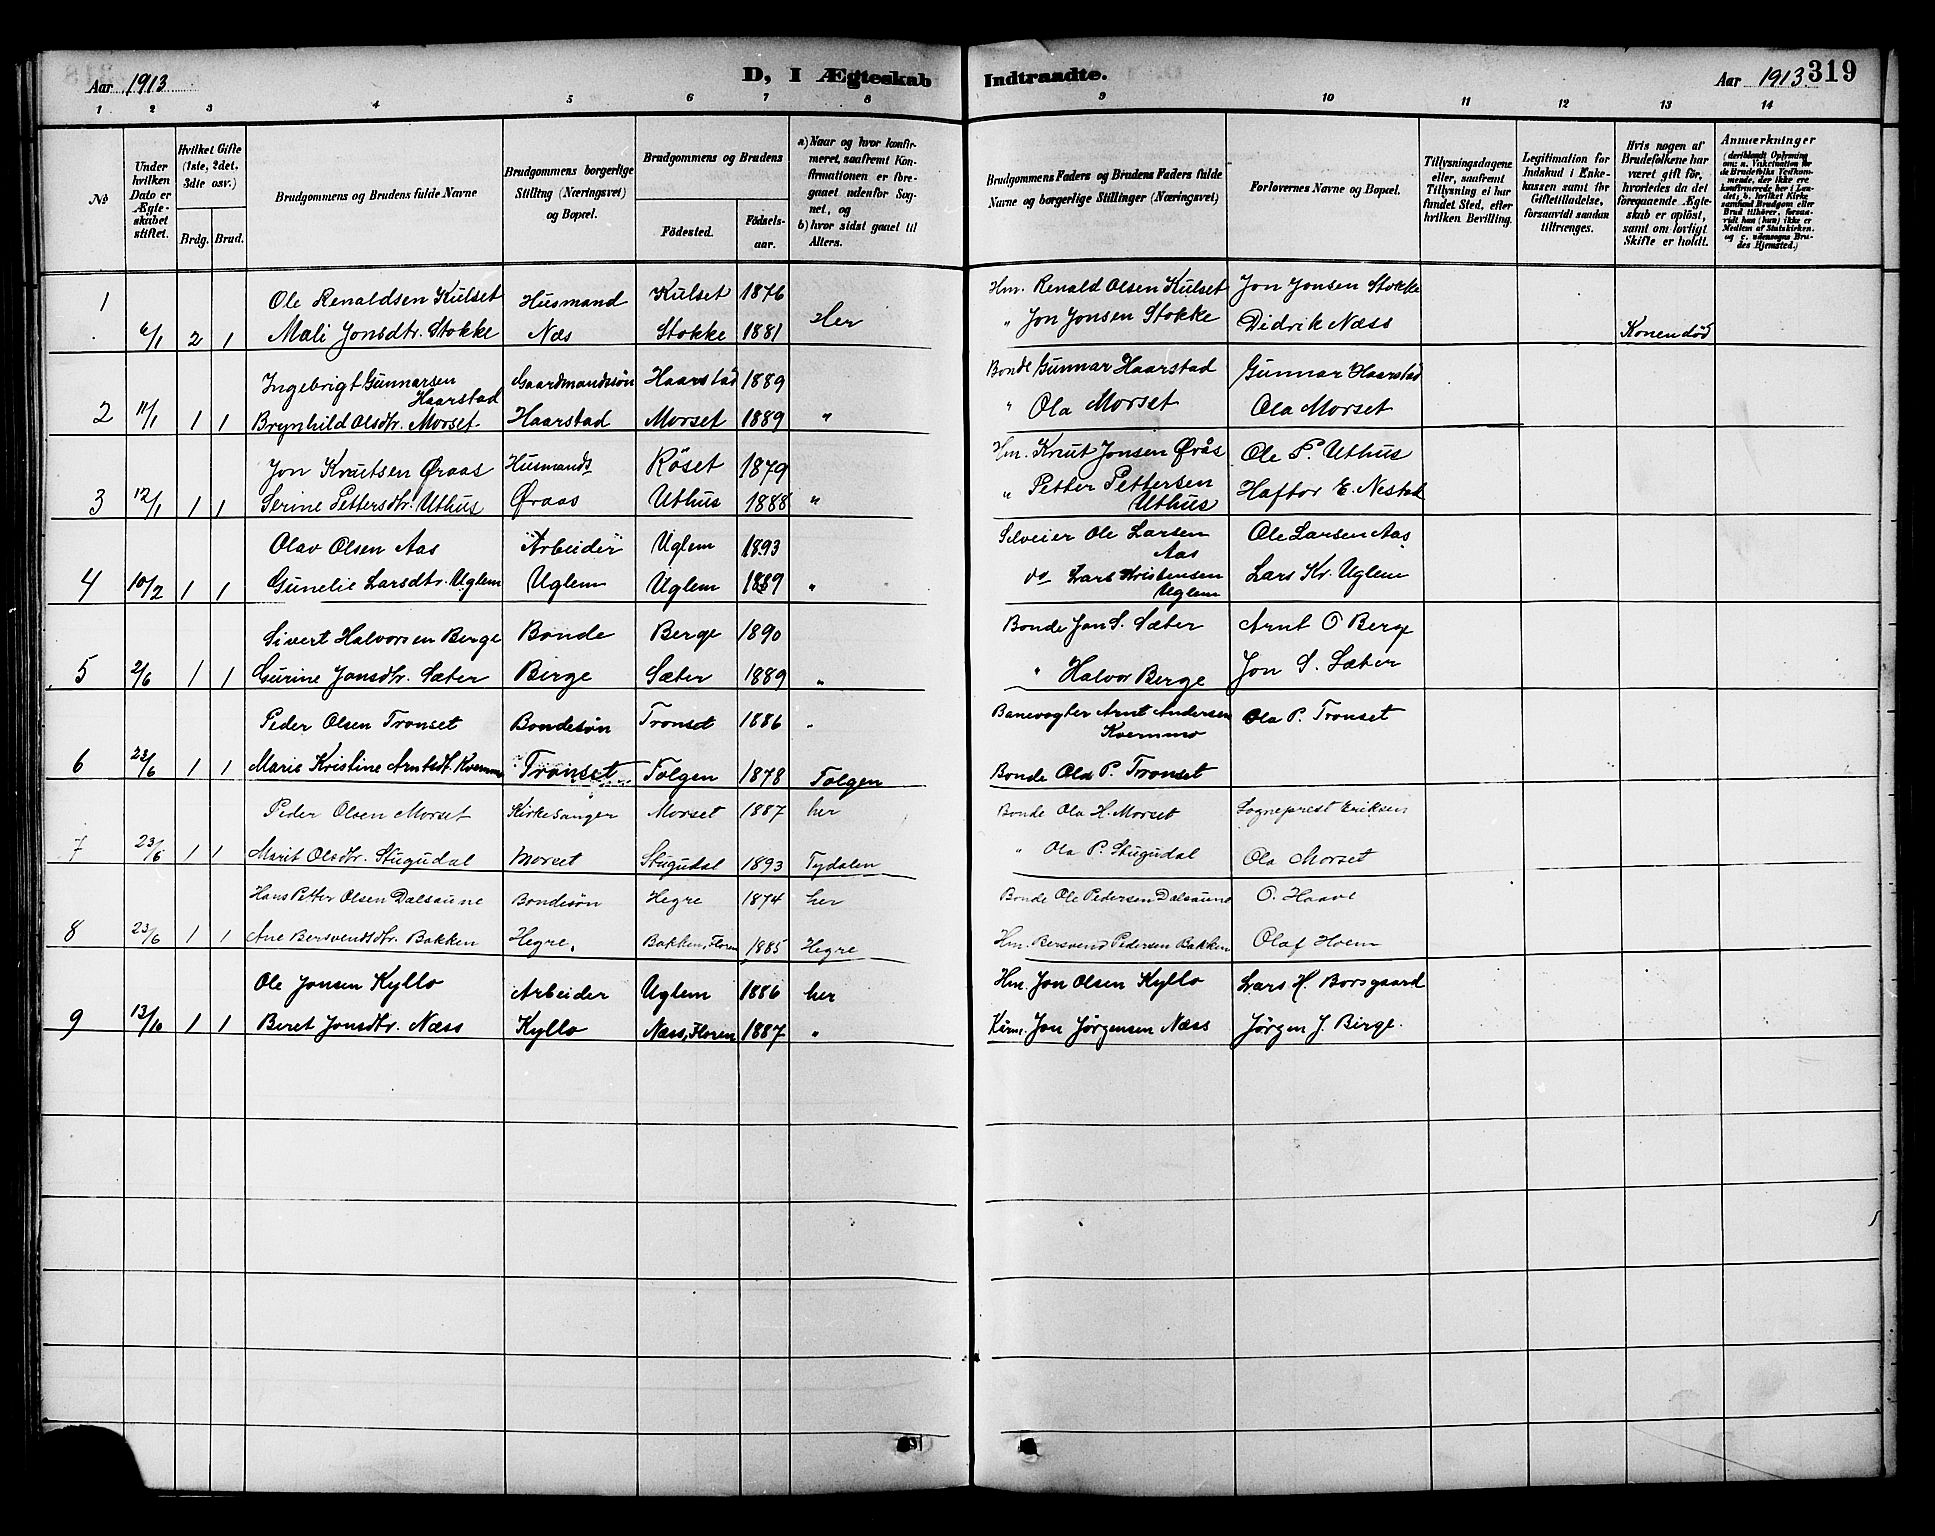 Aar 1913
D, I Ægteskab Indtraadte.
Aar 1913 319
1 2 3 4 5 6 7 8 9 10 11 12 13 14
No
Under hvilken Dato er Ægteskabet stiftet.
Hvilket Gifte (1ste, 2det, 3die osv.)
Brdg. Brud.
Brudgommens og Brudens fulde Navne
Brudgommens borgerlige Stilling (Næringsvei) og Bopæl.
Brudgommens og Brudens
Födested. Födselsaar.
a) Naar og hvor konfirmeret, saafremt Konfirmationen er foregaaet udenfor Sognet, og
b) hvor sidst gaaet til Alters.
Brudgommens Faders og Brudens Faders fulde Navne og borgerlige Stillinger (Næringsvei)
Forlovernes Navne og Bopæl.
Tillysningsdagene eller, saafremt Tillysning ei har fundet Sted, efter hvilken Bevilling.
Legitimation for Indskud i Enkekassen samt for Giftetilladelse, forsaavidt saadan tiltrænges.
Hvis nogen af Brudefolkene har været gift för, hvorledes da det foregaaende Ægteskab er oplöst, samt om lovligt Skifte er holdt.
Anmærkninger
(deriblandt Oplysning om: a. Vaksination for de Brudefolks Vedkommende, der ikke ere konfirmerede her i Landet, b. hvilket Kirkesamfund Brudgom eller Brud tilhörer, forsaavidt han (hun) ikke er Medlem af Statskirken, og c. udensogns Brudes Hjemsted.)
1 Ole Renaldsen Kulset Husmand Kulset 1876 Hm. Renald Olsen Kulset Jon Jonsen Stokke
6/1 2 1 Mali Jonsdtr. Stokke Næs Stokke 1881 Her " Jon Jonsen Stokke Didrik Næss Konen död
Ingebrigt Gunnarsen Haarstad Gaardmandssøn Haarstad 1889 Bonde Gunnar Haarstad Gunnar Haarstad
2 11/1 1 1 Brynhild Olsdtr. Morset Haarstad Morset 1889 " " Ola Morset Ola Morset
Jon Knutsen Øraas Husmands Röset 1879 Hm. Knut Jonsen Øråς Ole P. Uthus
3 12/1 1 1 Serine Pettersdtr. Uthus Øraas Uthus 1888 " " Petter Pettersen Uthus Haftor E. Nestad
Olav Olsen Aas Arbeider Uglem 1893 Selveier Ole Larsen Aas Ole Larsen Aas
4 10/2 1 1 Gunelie Larsdtr. Uglem Uglem Uglem 1889 " do Lars Kristensen Uglem Lars Kr. Uglem
Sivert Halvorsen Berge Bonde Berge 1890 Bonde Jon S. Sæter Arnt O Berge
5 2/6 1 1 Gurine Jonsdtr. Sæter Birge Sæter 1889 " " Halvor Berge Jon S. Sæter
Peder Olsen Tronset Bondesøn Tronset 1886 " Banevogter Arnt Andersen Kvemmo Ola P. Tronset
6 23/6 1 1 Marie Kristine Arntsdt. Kvemmo Tronset Tolgen 1878 Tolgen Bonde Ola P. Tronset
Peder Olsen Morset Kirkesanger Morset 1887 her Bonde Ola H. Morset Sogneprest Eriksen
7 23/6 1 1 Marit Olsdtr. Stugudal Morset Stugudal 1893 Tydalen " Ola P. Stugudal Ola Morset
Hans Petter Olsen Dalsaune Bondesön Hegre 1874 her Bonde Ole Pedersen Dalsaune O. Haave
8 23/6 1 1 Ane Bersvendsdtr. Bakken Hegre. Bakken, Floren 1885 Hegre Hm. Bersvend Pedersen Bakken Olaf Hoem
Ole Jonsen Kyllo Arbeider Uglem 1886 her Hm. Jon Olsen Kyllo Lars H. Borsgaard
9 13/10 1 1 Beret Jonsdtr. Næss Kyllo Næss, Floren 1887 " Jon Jørgensen Næss Jörgen J. Birge.